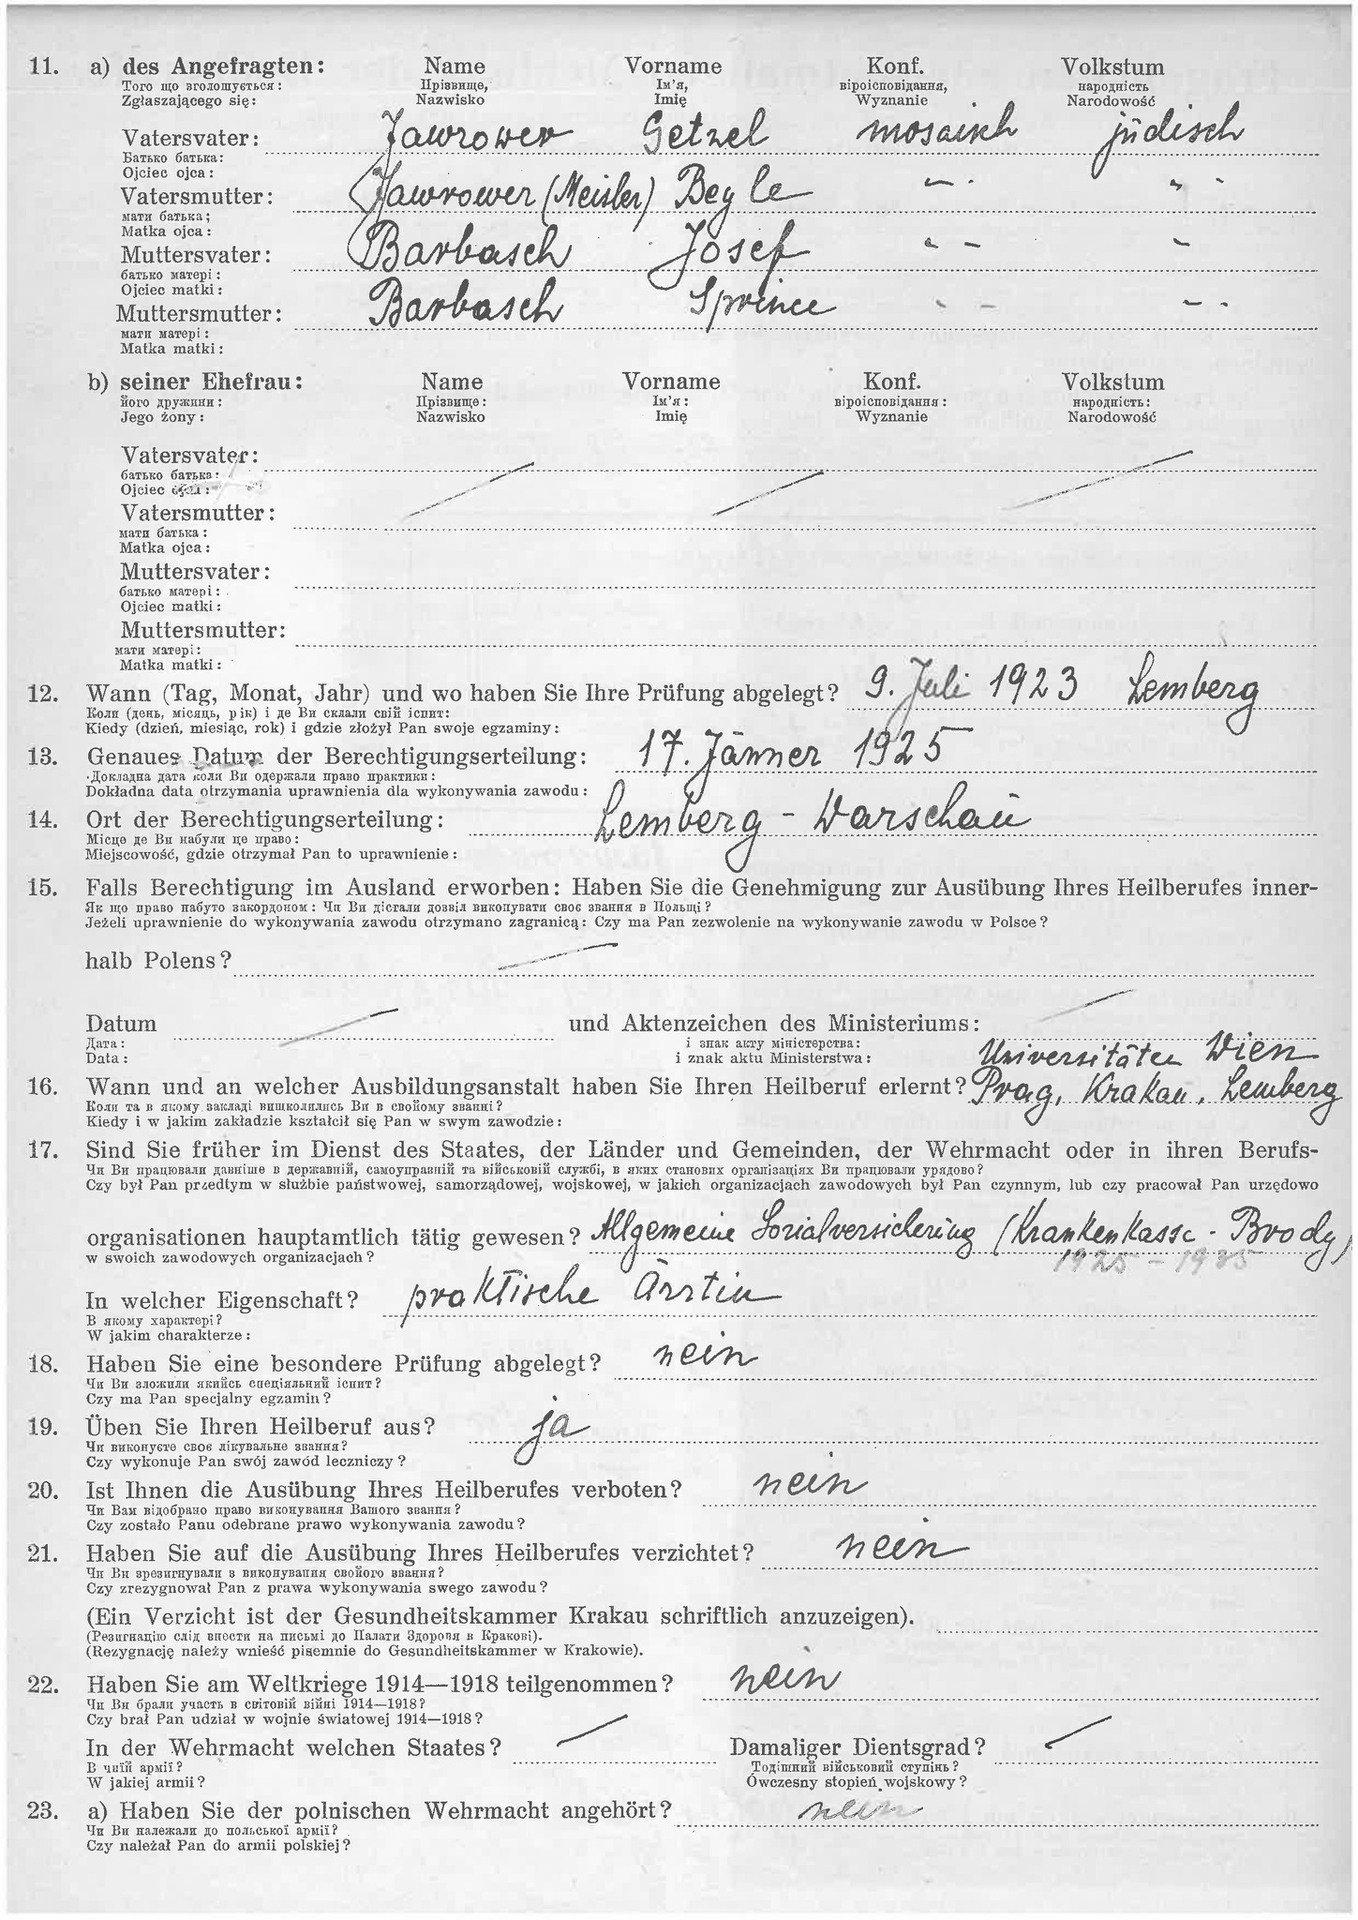 11. a) des Angefragten: Name Vorname Konf. Volkstum
Того що зголошується: Прізвище, Ім'я, віроісповідання, народність
Zgłaszającego się: Nazwisko Imię Wyznanie Narodowość
Vatersvater: Jawrower Getzel mosaisch jüdisch
Батько батька:
Ojciec ojca:
Vatersmutter: Jawrower (Meisler) Beyle - " -
мати батька;
Matka ojca:
Muttersvater: Barbasch Josef
батько матері:
Ojciec matki:
Muttersmutter: Barbasch Sprince
мати матері:
Matka matki:
b) seiner Ehefrau: Name Vorname Konf. Volkstum
його дружини: Прізвище: Ім'я: віроісповідання: народність:
Jego żony: Nazwisko Imię Wyznanie Narodowość
Vatersvater:
батько батька:
Ojciec ojca:
Vatersmutter:
мати батька:
Matka ojca:
Muttersvater:
батько матері:
Ojciec matki:
Muttersmutter:
мати матері:
Matka matki:
12. Wann (Tag, Monat, Jahr) und wo haben Sie Ihre Prüfung abgelegt? 9. Juli 1923 Lemberg
Коли (день, місяць, рік) і де Ви склали свій іспит:
Kiedy (dzień, miesiąc, rok) i gdzie złożył Pan swoje egzaminy:
13. Genaues Datum der Berechtigungserteilung: 17. Jänner 1925
Докладна дата коли Ви одержали право практики:
Dokładna data otrzymania uprawnienia dla wykonywania zawodu:
14. Ort der Berechtigungserteilung: Lemberg - Warschau
Місце де Ви набули це право:
Miejscowość, gdzie otrzymał Pan to uprawnienie:
15. Falls Berechtigung im Ausland erworben: Haben Sie die Genehmigung zur Ausübung Ihres Heilberufes inner-
Як що право набуто закордоном: Чи Ви дістали дозвіл виконувати своє звання в Польщі?
Jeżeli uprawnienie do wykonywania zawodu otrzymano zagranicą: Czy ma Pan zezwolenie na wykonywanie zawodu w Polsce?
halb Polens?
Datum und Aktenzeichen des Ministeriums:
Дата: і знак акту міністерства:
Data: i znak aktu Ministerstwa:
Universitäten Wien
16. Wann und an welcher Ausbildungsanstalt haben Sie Ihren Heilberuf erlernt? Prag, Krakau, Lemberg
Коли та в якому закладі вишколились Ви в свойому званні?
Kiedy i w jakim zakładzie kształcił się Pan w swym zawodzie:
17. Sind Sie früher im Dienst des Staates, der Länder und Gemeinden, der Wehrmacht oder in ihren Berufs-
Чи Ви працювали давніше в державній, самоуправній та військовій службі, в яких станових організаціях Ви працювали урядово?
Czy był Pan przedtym w służbie państwowej, samorządowej, wojskowej, w jakich organizacjach zawodowych był Pan czynnym, lub czy pracował Pan urzędowo
organisationen hauptamtlich tätig gewesen? Allgemeine Sozialversicherung (Krankenkasse - Brody)
w swoich zawodowych organizacjach? 1925 - 1935
In welcher Eigenschaft? praktische Ärztin
В якому характері?
W jakim charakterze:
18. Haben Sie eine besondere Prüfung abgelegt? nein
Чи Ви зложили якийсь спеціяльний іспит?
Czy ma Pan specjalny egzamin?
19. Üben Sie Ihren Heilberuf aus? ja
Чи виконуєте своє лікувальне звання?
Czy wykonuje Pan swój zawód leczniczy?
20. Ist Ihnen die Ausübung Ihres Heilberufes verboten? nein
Чи Вам відобрано право виконування Вашого звання?
Czy zostało Panu odebrane prawo wykonywania zawodu?
21. Haben Sie auf die Ausübung Ihres Heilberufes verzichtet? nein
Чи Ви зрезигнували з виконування свойого звання?
Czy zrezygnował Pan z prawa wykonywania swego zawodu?
(Ein Verzicht ist der Gesundheitskammer Krakau schriftlich anzuzeigen).
(Резигнацію слід внести на письмі до Палати Здоровя в Кракові).
(Rezygnację należy wnieść pisemnie do Gesundheitskammer w Krakowie).
22. Haben Sie am Weltkriege 1914—1918 teilgenommen? nein
Чи Ви брали участь в світовій війні 1914—1918?
Czy brał Pan udział w wojnie światowej 1914—1918?
In der Wehrmacht welchen Staates? Damaliger Dientsgrad?
В чиїй армії? Тодішний військовий ступінь?
W jakiej armii? Ówczesny stopień wojskowy?
23. a) Haben Sie der polnischen Wehrmacht angehört? nein
Чи Ви належали до польської армії?
Czy należał Pan do armii polskiej?